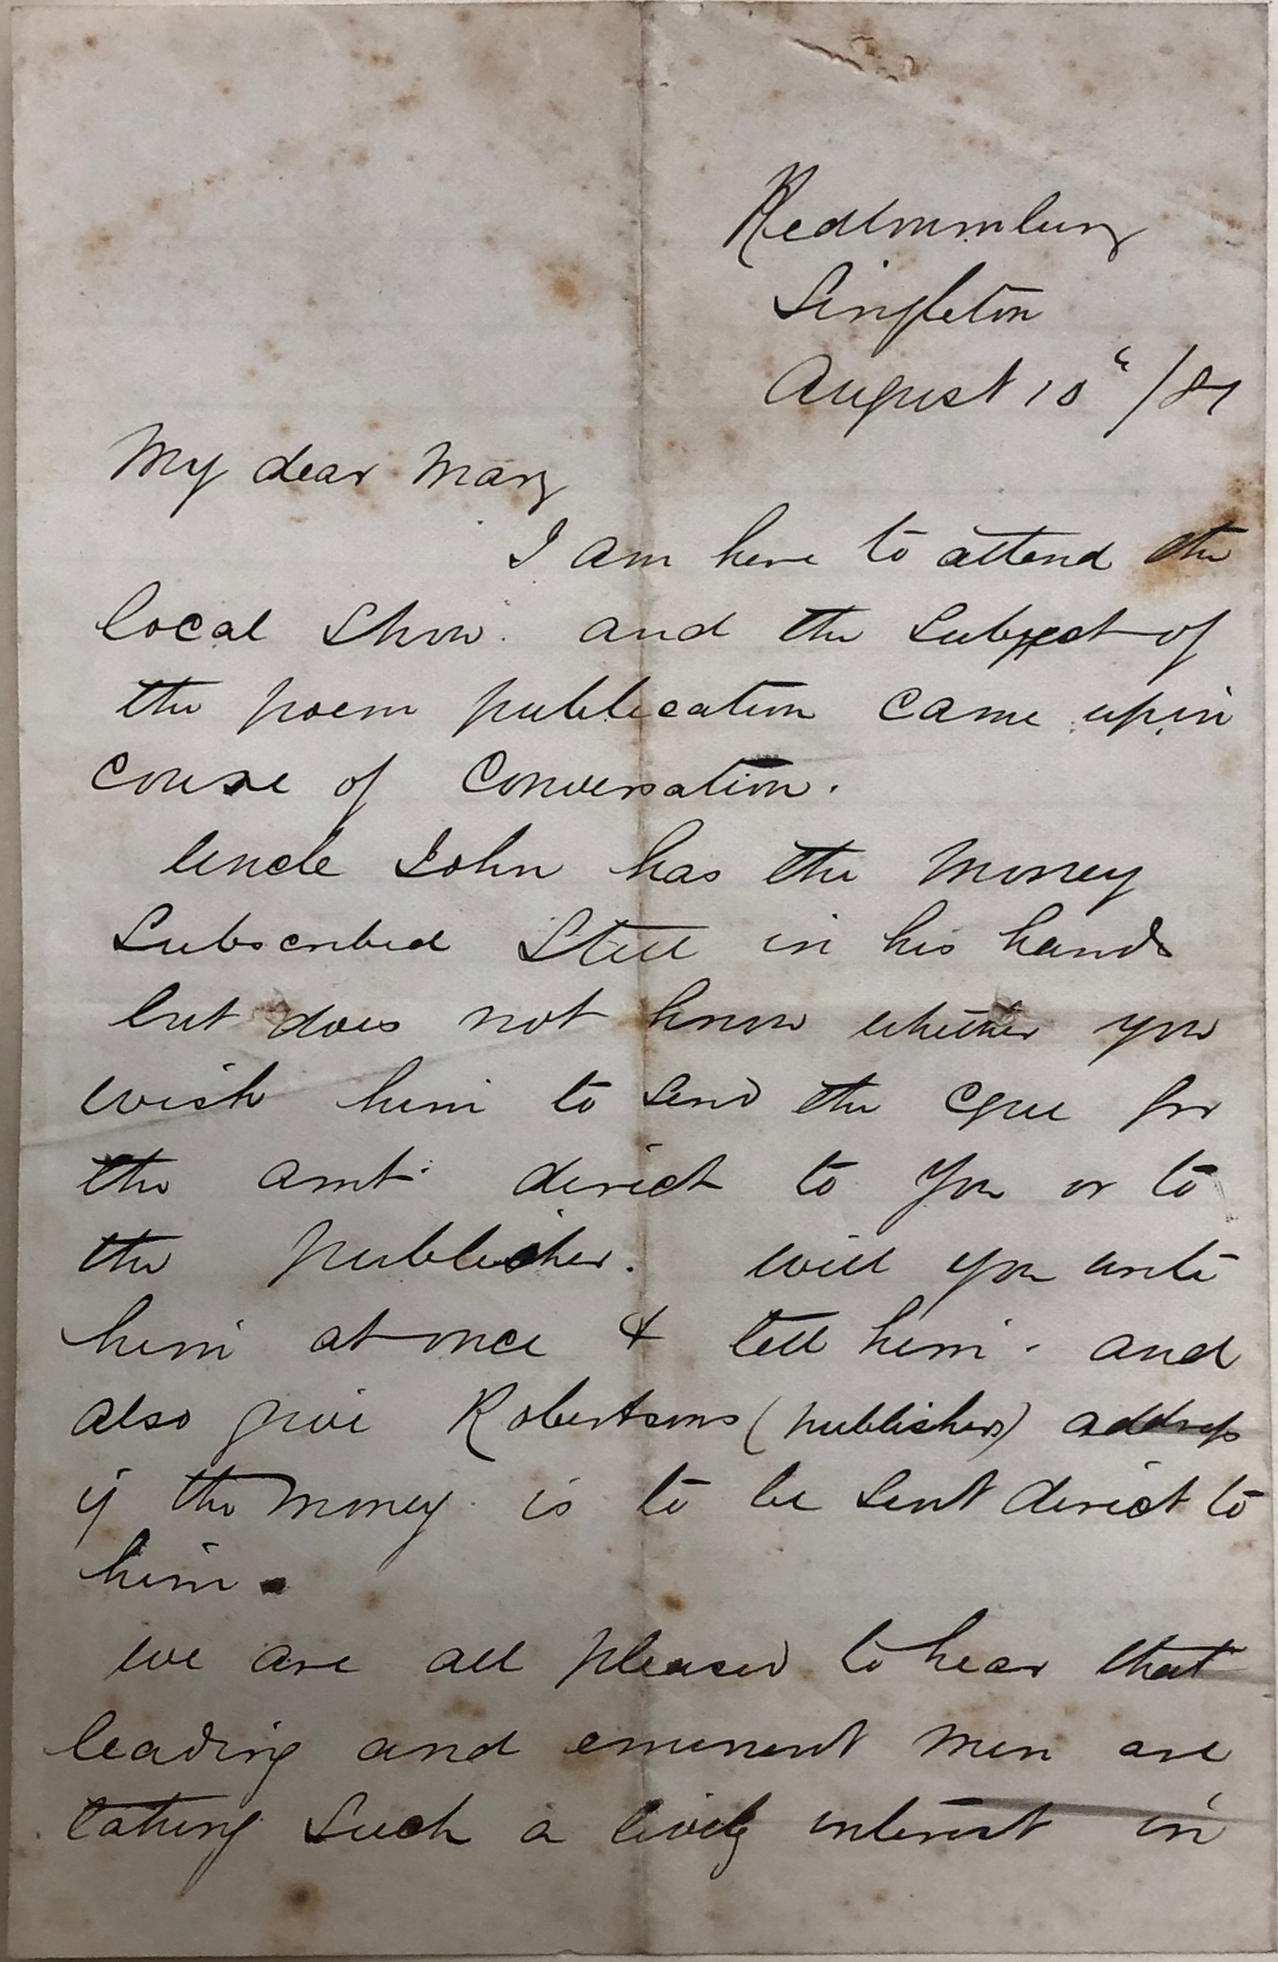 Redbournbury
Singleton
August 10th /87
My dear Mary
I am here to attend the
local Show. and the subject of
the poem publication came up in
course of Conversation.
Uncle John has the money
Subscribed Still in his hands
but does not know whether you
wish him to send the cque for
the amt. direct to you or to
the publisher. will you write
him at once & tell him. and
also give Robertsons (publishers) address
if the money is to be sent direct to
him.
We are all pleased to hear that
leading and eminent men are
taking such a lively interest in